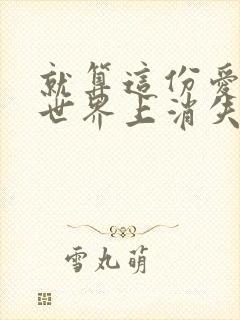 就算這份愛
世界上消失
雪丸萌